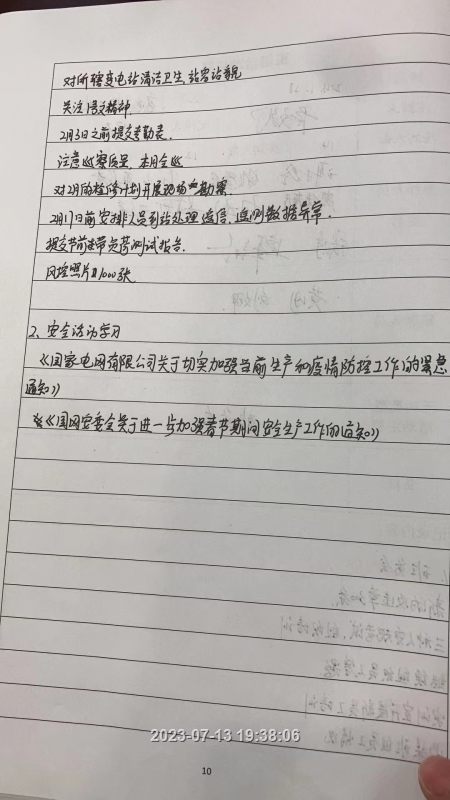 对所辖变电站清洁卫生、站容站貌
关注1号文精神.
2月3日之前提交考勤表.
注意巡察质量. 本月全巡
对2月的检修计划开展现场勘察.
2月17日前安排人员到站处理遥信,遥测数据异常.
提交节前带负荷测试报告.
风控照片1000张
2、安全活动学习
《国家电网有限公司关于切实加强当前生产和疫情防控工作的紧急
通知》
《国网安委会关于进一步加强春节期间安全生产工作的通知》
2023-07-13 19:38:06
10